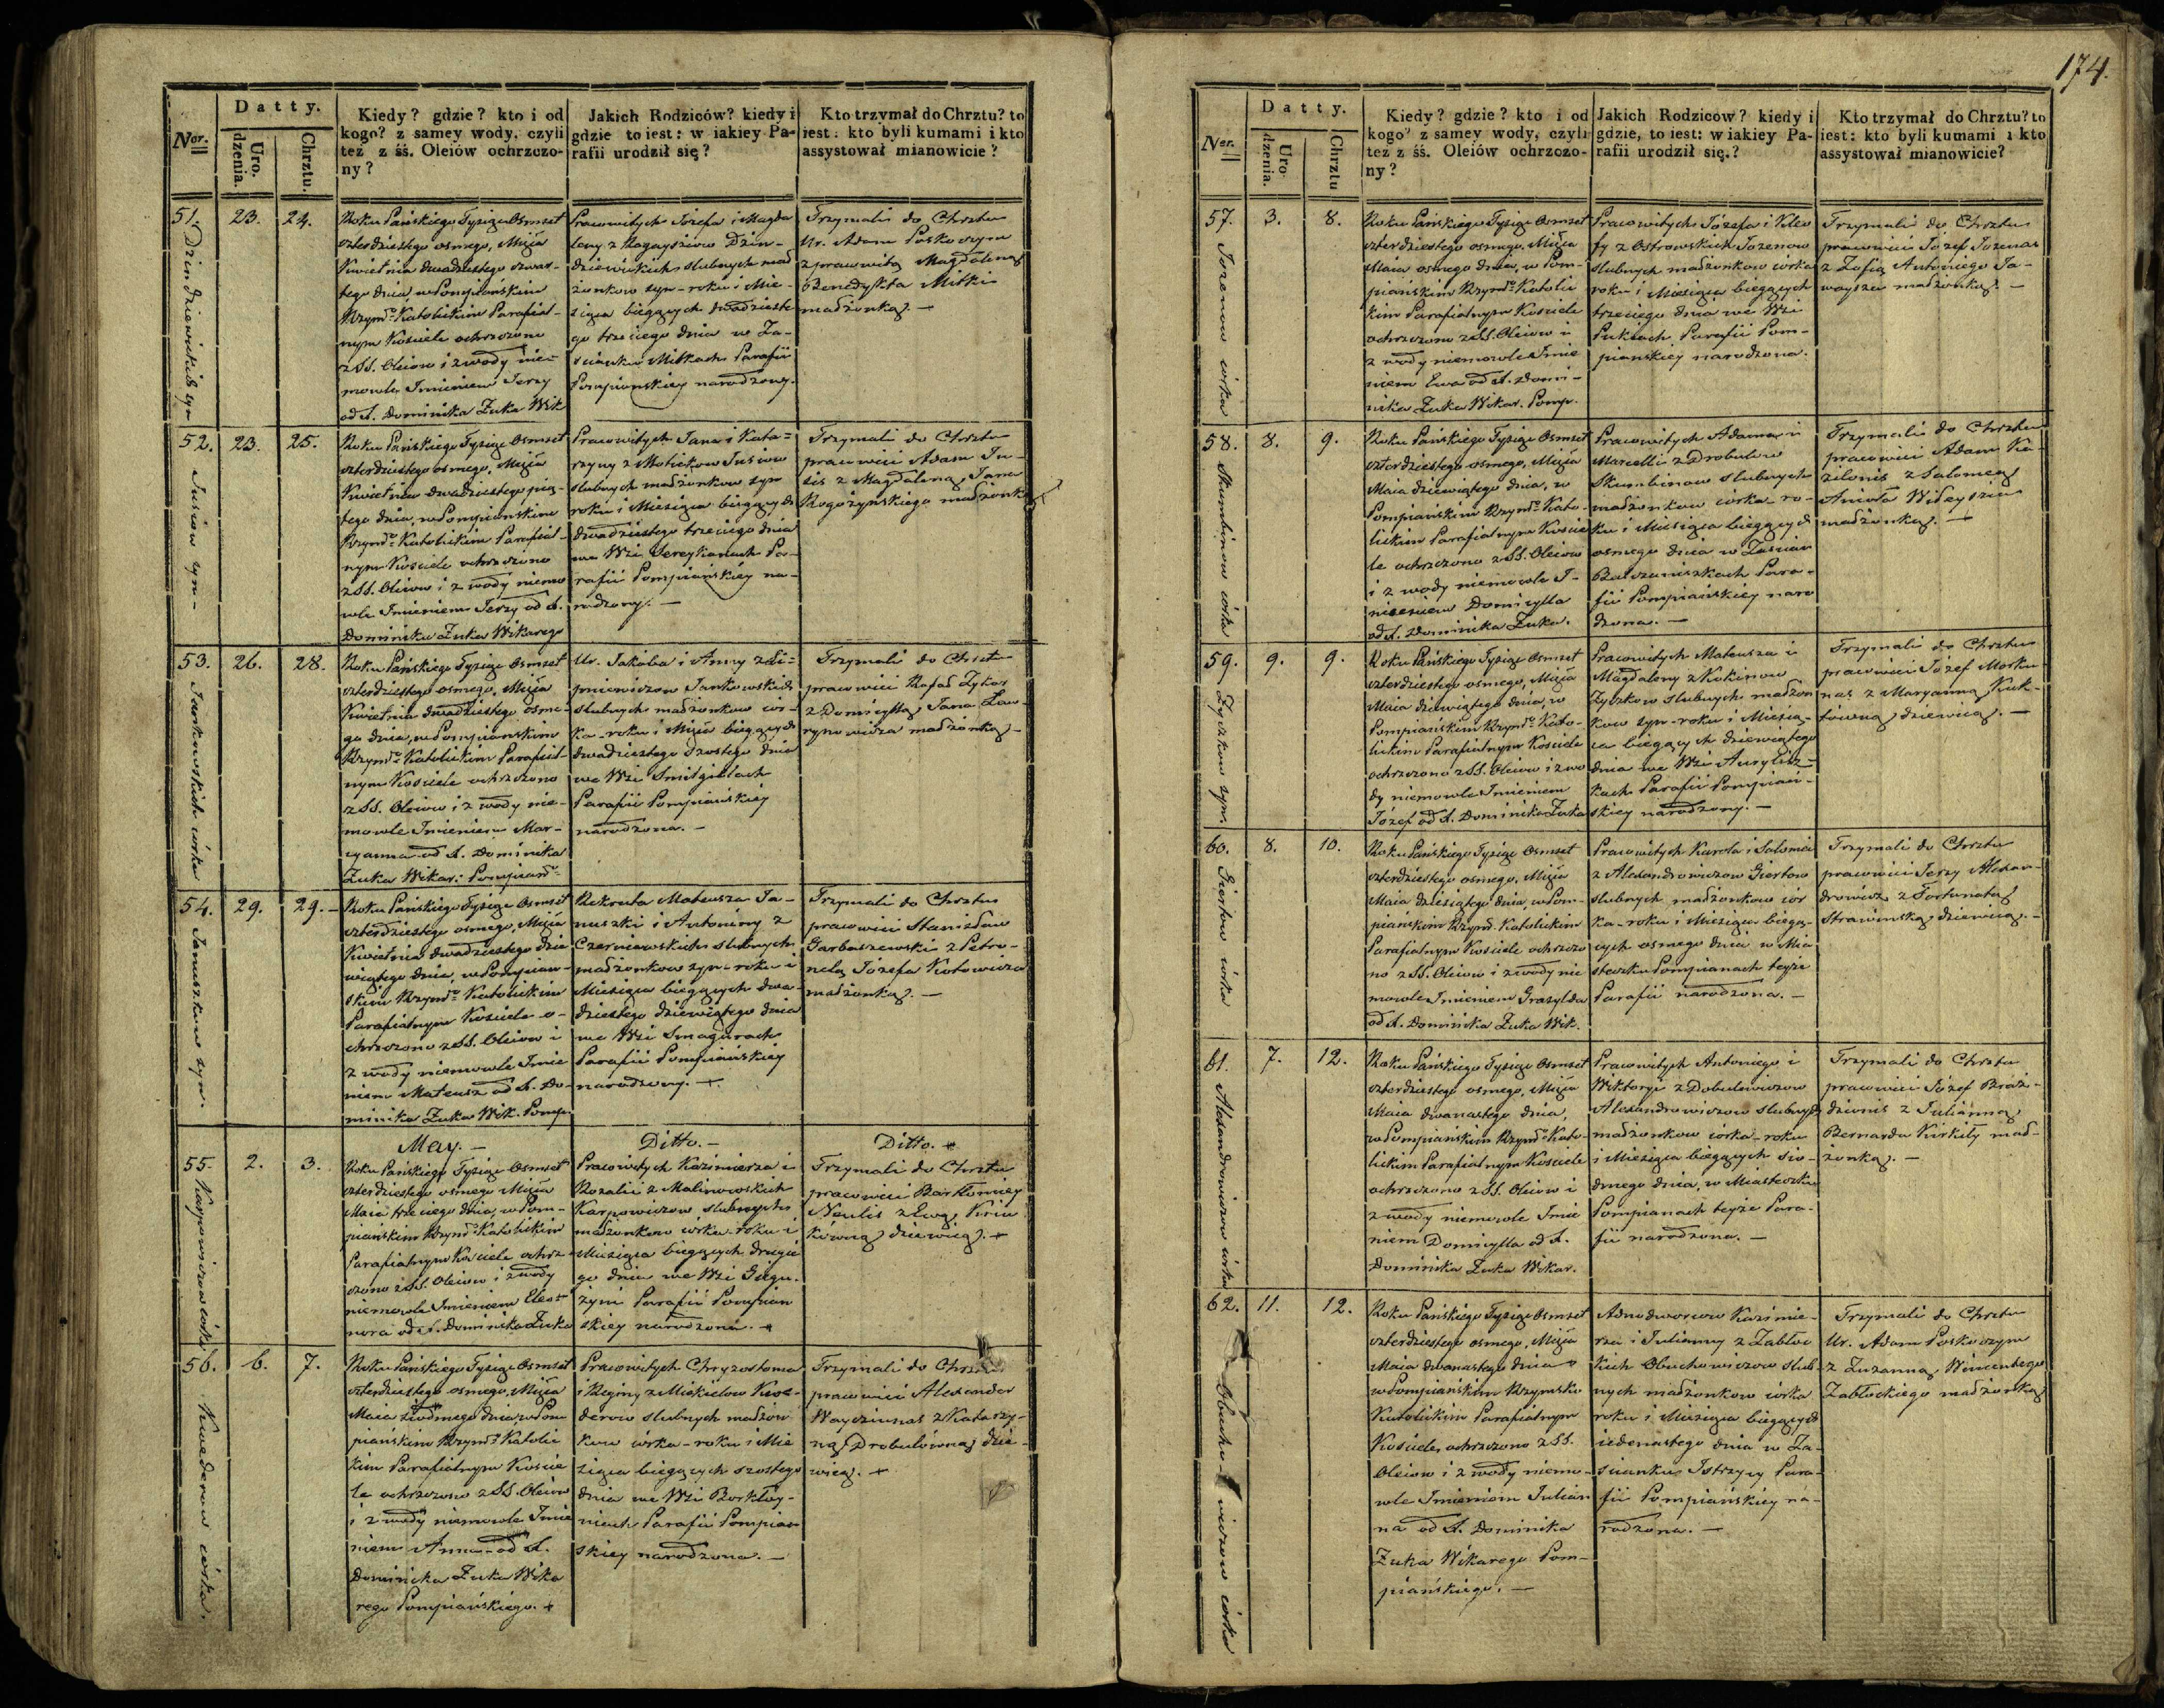 Datty.
Ner.
Uro-
dzenia.
Chrztu.
Kiedy? gdzie? kto i od
kogo? z samey wody, czyli
też z śś. Oleiów ochrzczo-
ny?
Jakich Rodziców? kiedy i
gdzie to iest: w iakiey Pa-
rafii urodził się?
Kto trzymał do Chrztu? to
iest: kto byli kumami i kto
assystował mianowicie?
51.
23.
24.
Roku Pańskiego Tysiąc Osmset
czterdziestego osmego, Mięsią
Kwietnia dwadziestego czwar-
tego dnia, w Pompiańskim
Rzymo Katolickim Parafial-
nym Kościele ochrzczono
z SS. Oleiow i z wody nie-
mowle Imieniem Jerzy
od X. Dominika Żuka Wik
Pracowitych Józefa i Magda
leny z Rogayszow Dzin-
dziewickich slubnych mał
żonkow syn - roku i Mie-
siąca bieżących dwadzieste
go trzeciego dnia w Za-
ścianku Mitkach Parafii
Pompianskiey narodzony.
Trzymali do Chrztu
Ur. Adam Poskoczym
z pracowitą Magdaleną
Benedykta Mitki
małżonką. —
52.
23.
25.
Roku Pańskiego Tysiąc Osmset
czterdziestego osmego, Mięsią
Kwietnia dwadziestego pią-
tego dnia, w Pompianskim
Rzymo Katolickim Parafial-
nym Kościele ochrzczono
z SS. Oleiow i z wody niemo
wle Imieniem Jerzy od X.
Dominika Żuka Wikarego
Pracowitych Jana i Kata=
rzyny z Motiekow Jusiow
slubnych małżonkow syn
roku i Miesiąca bieżących
dwadziestego trzeciego dnia
we Wsi Sereykanach Pa-
rafii Pompiańskiey na-
rodzony. —
Jusiow syn -
Trzymali do Chrztu
pracowici Adam Ju-
sis z Magdaleną Jana
Rogożynskiego małżonką
53.
26.
28.
Jankowskich córka
Roku Pańskiego Tysiąc Osmset
czterdziestego osmego, Mięsią
Kwietnia dwadziestego osme-
go dnia, w Pompianskim
Rzymo Katolickim Parafial-
nym Kościele ochrzczono
z SS. Oleiow i z wody nie-
mowle Imieniem Mar-
yanna od X. Dominika
Żuka Wikar: Pompiań-
Ur. Jakoba i Anny z Li=
pniewiczow Jankowskich
slubnych małżonkow cor-
ka - roku i Mięsią bieżących
dwadziestego szostego dnia
we Wsi Smilgielach
Parafii Pompiańskiey
narodzona. —
Trzymali do Chrztu
pracowici Rafał Zykas
z Domicyllą Jana Ław-
rynowicza małżonką —
54.
29.
29. -
Januszkow syn.
Roku Pańskiego Tysiąc Osmset
czterdziestego osmego, Mięsią
Kwietnia dwadziestego dzie
wiątego dnia, w Pompian-
skim Rzymo Katolickim
Parafialnym Kościele o-
chrzczono z SS. Oleiow i
z wody niemowle Imie
niem Mateusz od X. Do-
minika Żuka Wik. Pomp.
Rekruta Mateusza Ja-
nuszki i Antoniny z
Czerniawskich slubnych
małżonkow syn - roku i
Miesiąca bieżących dwa-
dziestego dziewiątego dnia
we Wsi Smagurach
Parafii Pompiańskiey
narodzony. +.
Trzymali do Chrztu
pracowici Stanisław
Garbaszewski z Petro-
nelą Józefa Kotowicza
małżonką. —
May. —
Ditto. —
Ditto. +
55.
2.
3.
Karpowiczow córka
Roku Pańskiego Tysiąc Osmset
czterdziestego osmego Mięsią
Maia trzeciego dnia, w Pom-
piańskim Rzymo Katolickim
Parafialnym Kościele ochrz
czono z SS. Oleiow i z wody
niemowle Imieniem Eleo-
nora od X. Dominika Żuka
Pracowitych Kazimierza i
Rozalii z Malinowskich
Karpowiczow slubnych
małżonkow córka - roku i
Miesiąca bieżących drugie
go dnia we Wsi Giegu-
żyni Parafii Pompian
skiey narodzona. +
Trzymali do Chrztu
pracowici Bartłomiey
Neulis z Ewą Kriu
kówną dziewicą. +
56.
6.
7.
Kwederow córka.
Roku Pańskiego Tysiąc Osmset
czterdziestego osmego, Mięsią
Maia siodmego dnia, w Pom
pianskim Rzymo Katolic
kim Parafialnym Koscie
le ochrzczono z SS. Oleiow
i z wody niemowle Imie
niem Anna - od X.
Dominika Żuka Wika
rego Pompiańskiego. +
Pracowitych Chryzostoma
i Reginy z Mickielow Kwe-
derow slubnych małżon
kow córka - roku i Mie
siąca bieżących szostego
dnia we Wsi Borkłoy-
niach Parafii Pompian
skiey narodzona. —
Trzymali do Chrztu
pracowici Alexander
Waydziunas z Katarzy-
ną Drobulówną dzie-
wicą. +
174.
Datty.
Ner.
Uro-
dzenia.
Chrztu
Kiedy? gdzie? kto i od
kogo? z samey wody, czyli
też z śś. Oleiów ochrzczo-
ny?
Jakich Rodziców? kiedy i
gdzie, to iest: w iakiey Pa-
rafii urodził się.?
Kto trzymał do Chrztu? to
iest: kto byli kumami i kto
assystował mianowicie?
57.
3.
8.
Jozenow córka
Roku Pańskiego Tysiąc Osmset
czterdziestego osmego, Mięsią
Maia osmego dnia, w Pom-
piańskim Rzymo Katolic
kim Parafialnym Kościele
ochrzczono z SS. Oleiow i
z wody niemowle Imie
niem Ewa od X. Domi-
nika Żuka Wikar. Pomp.
Pracowitych Józefa i Kleo
fy z Ostrowskich Jozenow
slubnych małżonkow córka
roku i Miesiąca bieżących
trzeciego dnia we Wsi
Puksiach Parafii Pom-
pianskiey narodzona.
Trzymali do Chrztu
pracowici Józef Jozenas
z Zofią Antoniego Ja-
waysza małżonką. —
58.
8.
9.
Skumbinow córka
Roku Pańskiego Tysiąc Osmset
czterdziestego osmego, Mięsią
Maia dziewiątego dnia, w
Pompiańskim Rzymo Kato-
lickim Parafialnym Koscie
le ochrzczono z SS. Oleiow
i z wody niemowle I-
mieniem Domicylla
od X. Dominika Żuka.
Pracowitych Adama i
Marcelli z Drobulow
Skumbinow slubnych
małżonkow córka - ro-
ku i Miesiąca bieżących
osmego dnia w Zascian
Balczuniszkach Para-
fii Pompiańskiey naro
dzona. —
Trzymali do Chrztu
pracowici Adam Ka-
zilonis z Salomeą
Anioła Wileyszisa
małżonką. —
59.
9.
9.
Zyczkow syn.
Roku Pańskiego Tysiąc Osmset
czterdziestego osmego, Mięsią
Maia dziewiątego dnia, w
Pompiańskim Rzymo Kato-
lickim Parafialnym Kościele
ochrzczono z SS. Oleiow i z wo
dy niemowle Imieniem
Józef od X. Dominika Żuka
Pracowitych Mateusza i
Magdaleny z Kokinow
Zyczkow slubnych małżon
kow syn - roku i Miesią-
ca bieżących dziewiątego
dnia we Wsi Aurylisz-
kach Parafii Pompiań-
skiey narodzony. —
Trzymali do Chrztu
pracowici Józef Morku
nas z Maryanną Kuk-
tówną dziewicą. —
60.
8.
10.
Giertow córka
Roku Pańskiego Tysiąc Osmset
czterdziestego osmego, Mięsią
Maia dziesiątego dnia, w Pom-
piańskim Rzymo Katolickim
Parafialnym Kościele ochrzczo
no z SS. Oleiow i z wody nie
mowle Imieniem Grazylda
od X. Dominika Żuka Wik.
Pracowitych Karola i Salomei
z Alexandrowiczow Giertow
slubnych małżonkow cor
ka - roku i Miesiąca bieżą-
cych osmego dnia w Mia
steczku Pompianach teyże
Parafii narodzona. —
Trzymali do Chrztu
pracowici Jerzy Alexan-
drowicz z Fortunatą
Strawinską dziewicą. -
61.
7.
12.
Alexandrowiczow córka
Roku Pańskiego Tysiąc Osmset
czterdziestego osmego, Mięsią
Maia dwanastego dnia,
w Pompiańskim Rzymo Kato-
lickim Parafialnym Kościele
ochrzczono z SS. Oleiow i
z wody niemowle Imie
niem Domicylla od X.
Dominika Żuka Wikar.
Pracowitych Antoniego i
Wiktoryi z Dobulewiczow
Alexandrowiczow slubnych
małżonkow córka - roku
i Miesiąca bieżących sio-
dmego dnia, w Miasteczku
Pompianach teyże Para-
fii narodzona. —
Trzymali do Chrztu
pracowici Józef Braż-
dzionis z Julianną
Bernarda Kirkiły mał-
żonką. —
62.
11.
12.
Obuchowiczow córka
Roku Pańskiego Tysiąc Osmset
czterdziestego osmego, Mięsią
Maia dwanastego dnia
w Pompiańskim Rzymsko
Katolickim Parafialnym
Kościele, ochrzczono z SS.
Oleiow i z wody niemo-
wle Imieniem Julian
na od X. Dominika
Żuka Wikarego Pom-
piańskiego. —
Adnodworcow Kazimie-
rza i Julianny z Zabłoc
kich Obuchowiczow slub-
nych małżonkow córka
roku i Miesiąca bieżących
iedenastego dnia w Za-
scianku Istrzycy Para-
fii Pompiańskiey na-
rodzona. —
Trzymali do Chrztu
Ur. Adam Poskoczym
z Zuzanną Wincentego
Zabłockiego małżonką